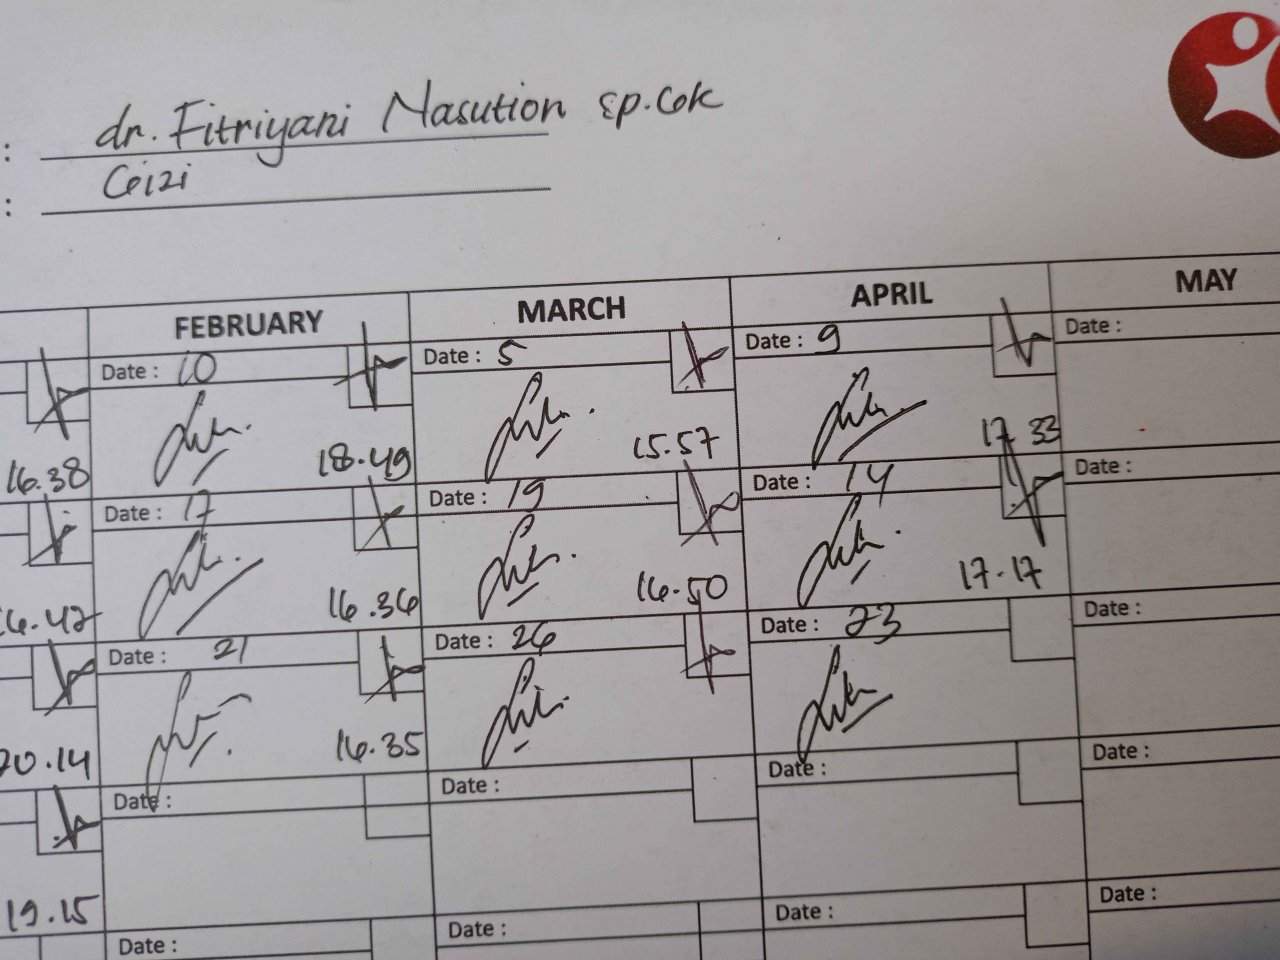 : dr. Fitriyani Nasution sp.GK
: Gizi
FEBRUARY MARCH APRIL MAY
Date : 10 Date : 5 Date : 9 Date :
16.38 18.49 15.57 17.33
Date : 17 Date : 19 Date : 14 Date :
16.36 16.50 17.17
Date : 21 Date : 26 Date : 23 Date :
20.14 16.35
Date : Date : Date : Date :
19.15
Date : Date : Date : Date :